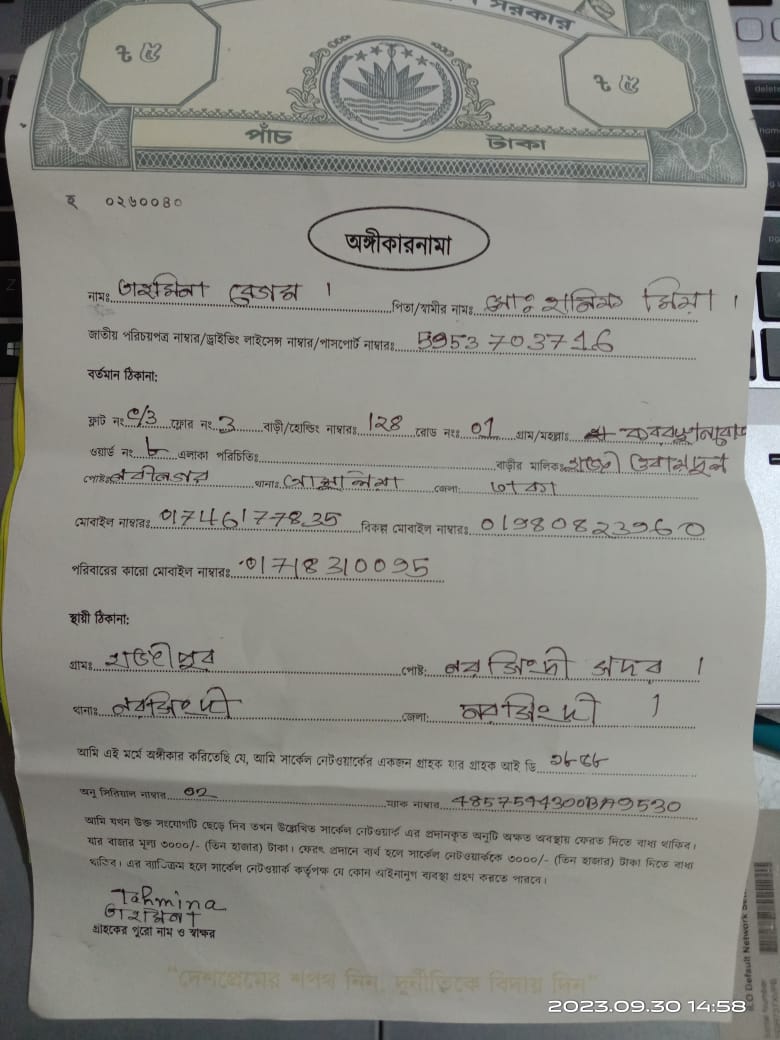 সরকার
৳ ৫ ৳ ৫
পাঁচ টাকা
হ ০২৬০০৪০
অঙ্গীকারনামা
নামঃ তাহমিনা বেগম । পিতা/স্বামীর নামঃ মোঃ মানিক মিয়া ।
জাতীয় পরিচয়পত্র নাম্বার/ড্রাইভিং লাইসেন্স নাম্বার/পাসপোর্ট নাম্বারঃ 5953703716
বর্তমান ঠিকানা:
ফ্লাট নং ফ্লোর নং 3 বাড়ী/হোল্ডিং নাম্বারঃ 128 রোড নংঃ 01 গ্রাম/মহল্লাঃ
ওয়ার্ড নং ৮ এলাকা পরিচিতিঃ বাড়ীর মালিকঃ হাজী
পোষ্টঃ নবীনগর থানাঃ জেলা: ঢাকা
মোবাইল নাম্বারঃ 01746177835 বিকল্প মোবাইল নাম্বারঃ 01980823960
পরিবারের কারো মোবাইল নাম্বারঃ 01718310095
স্থায়ী ঠিকানা:
গ্রামঃ হাজীপুর পোষ্ট: নরসিংদী সদর ।
থানাঃ নরসিংদী জেলা: নরসিংদী ।
আমি এই মর্মে অঙ্গীকার করিতেছি যে, আমি সার্কেল নেটওয়ার্কের একজন গ্রাহক যার গ্রাহক আই ডি
অনু সিরিয়াল নাম্বার 02 ম্যাক নাম্বার 4857594300BA9530
আমি যখন উক্ত সংযোগটি ছেড়ে দিব তখন উল্লেখিত সার্কেল নেটওয়ার্ক এর প্রদানকৃত অনুটি অক্ষত অবস্থায় ফেরত দিতে বাধ্য থাকিব।
যার বাজার মূল্য ৩০০০/- (তিন হাজার) টাকা। ফেরৎ প্রদানে ব্যর্থ হলে সার্কেল নেটওয়ার্ককে ৩০০০/- (তিন হাজার) টাকা দিতে বাধ্য
থাকিব। এর ব্যতিক্রম হলে সার্কেল নেটওয়ার্ক কর্তৃপক্ষ যে কোন আইনানুগ ব্যবস্থা গ্রহণ করতে পারবে।
Tahmina
তাহমিনা
গ্রাহকের পুরো নাম ও স্বাক্ষর
"দেশপ্রেমের শপথ নিন, দুর্নীতিকে বিদায় দিন"
2023.09.30 14:58